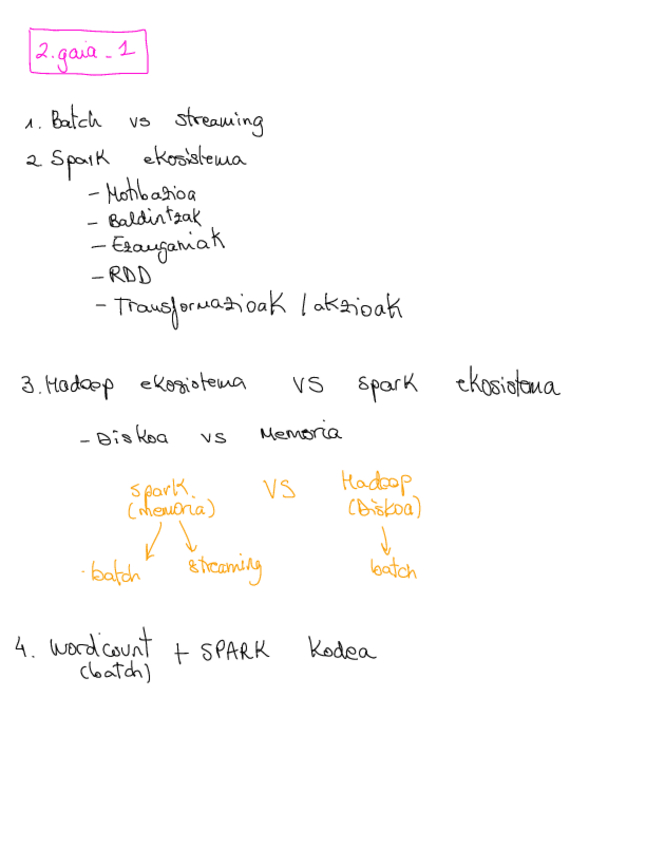 2.gaia_1
1. Batch vs streaming
2 Spark ekosistema
- Motibazioa
- Baldintzak
- Ezaugarriak
- RDD
- Transformazioak / akzioak
3. Hadoop ekosistema vs spark ekosistema
- Diskoa vs Memoria
spark vs Hadoop
(Memoria) (Diskoa)
batch streaming batch
4. wordcount + SPARK kodea
(batch)